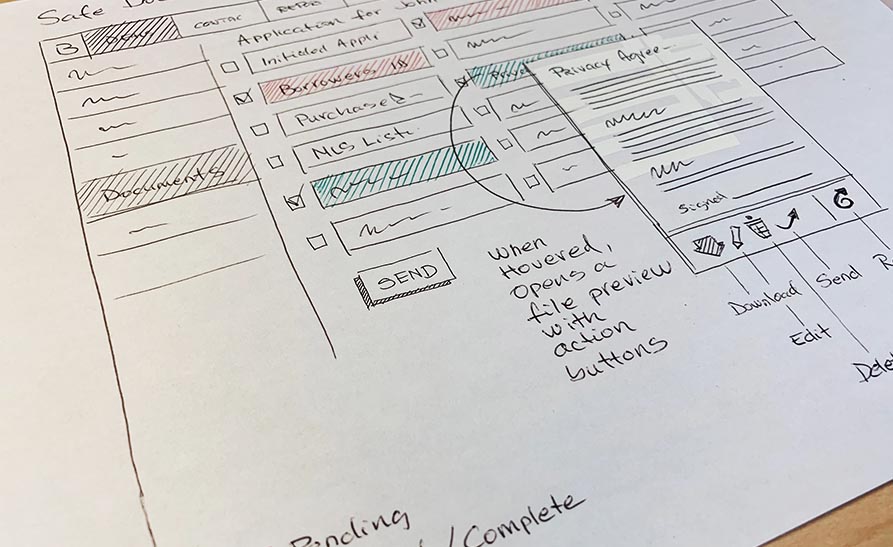 Safe
B
CONTAC
Application for John
Initialed Appli
Borrowers
Purchase
MLS List
Documents
SEND
Privacy Agree
Signed
when
Hovered,
opens a
file preview
with
action
buttons
Download
Send
Edit
Dele
Pending
/Complete